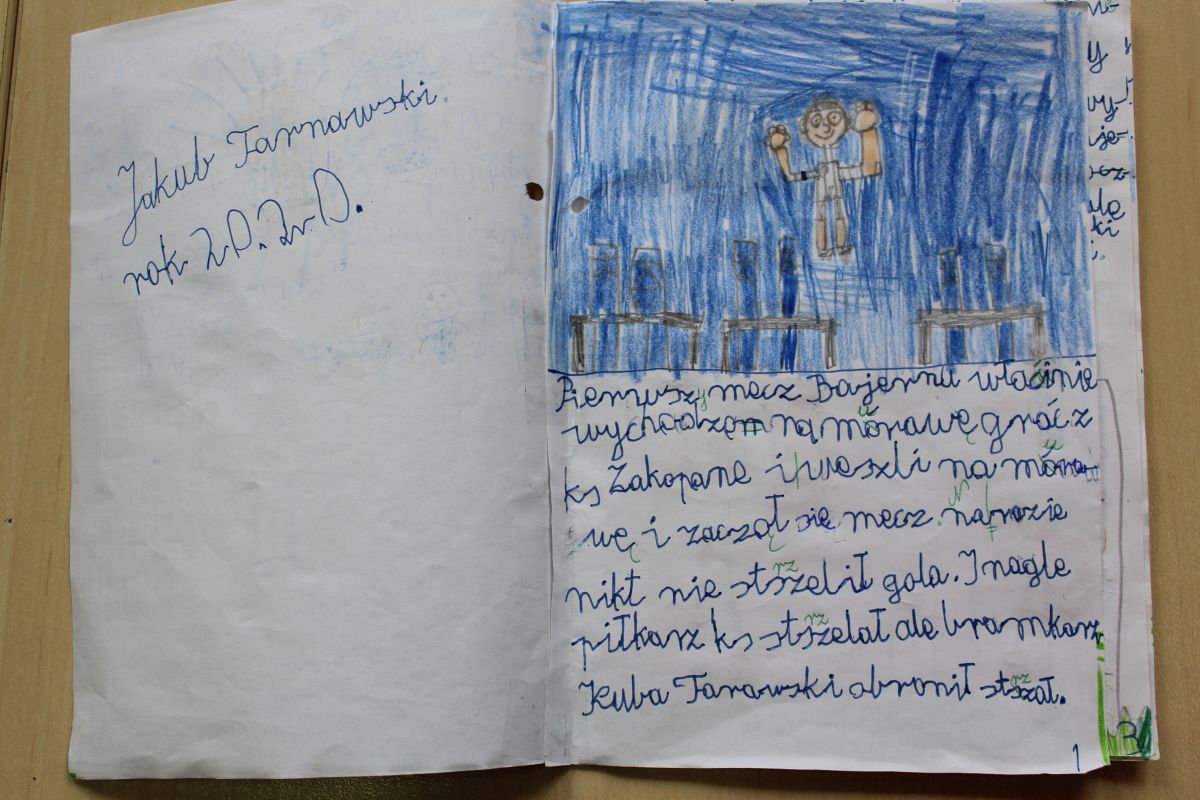 Jakub Tarnawski
rok 2.0.2.0.
Pierwszy mecz Bajernu właśinie
wychodzem na mórawę gráć z
ks Zakopane i weszli na móra
wę i zaczął się mecz. narazie
nikt nie stszelił gola. I nagle
piłkarz ks stszelał ale bramkarz
Kuba Tarawski obronił stszał.
1
3